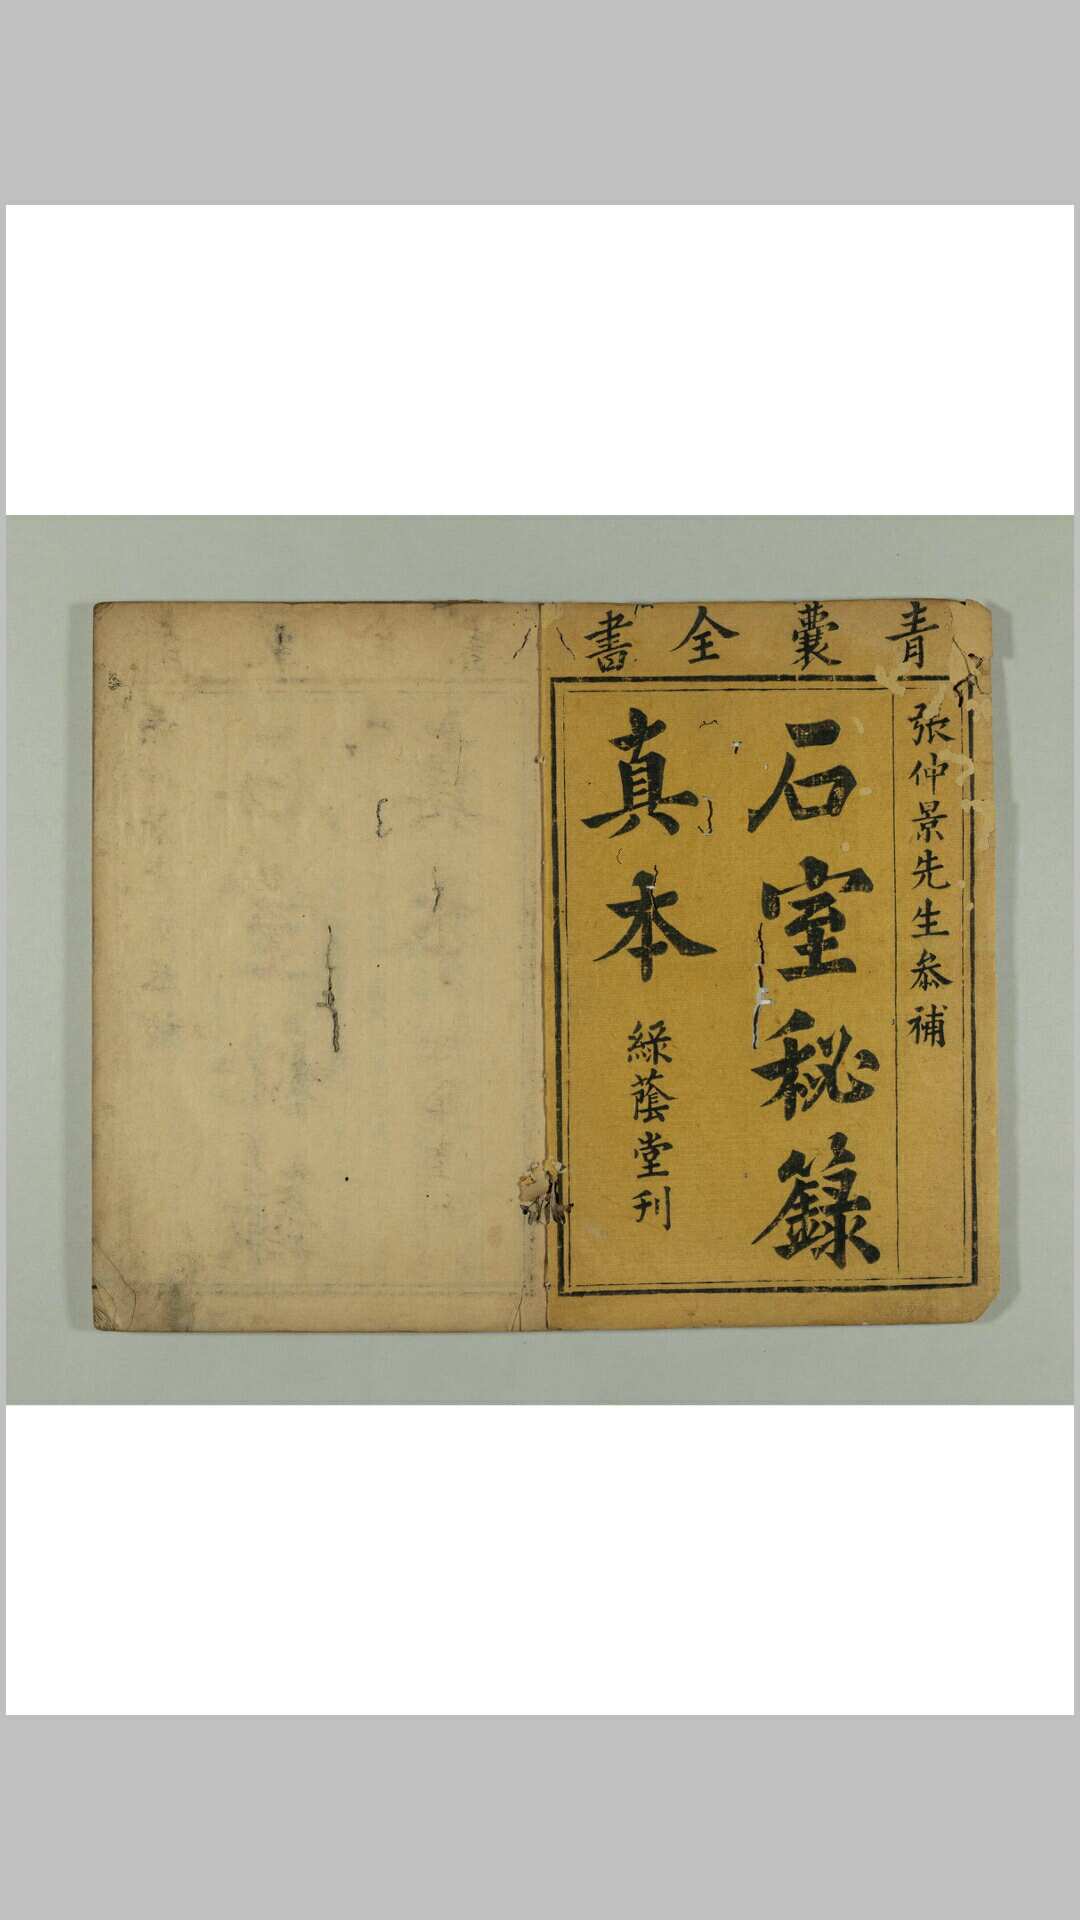 青囊全書
張仲景先生叅補
石室秘籙
真本
綠蔭堂刊